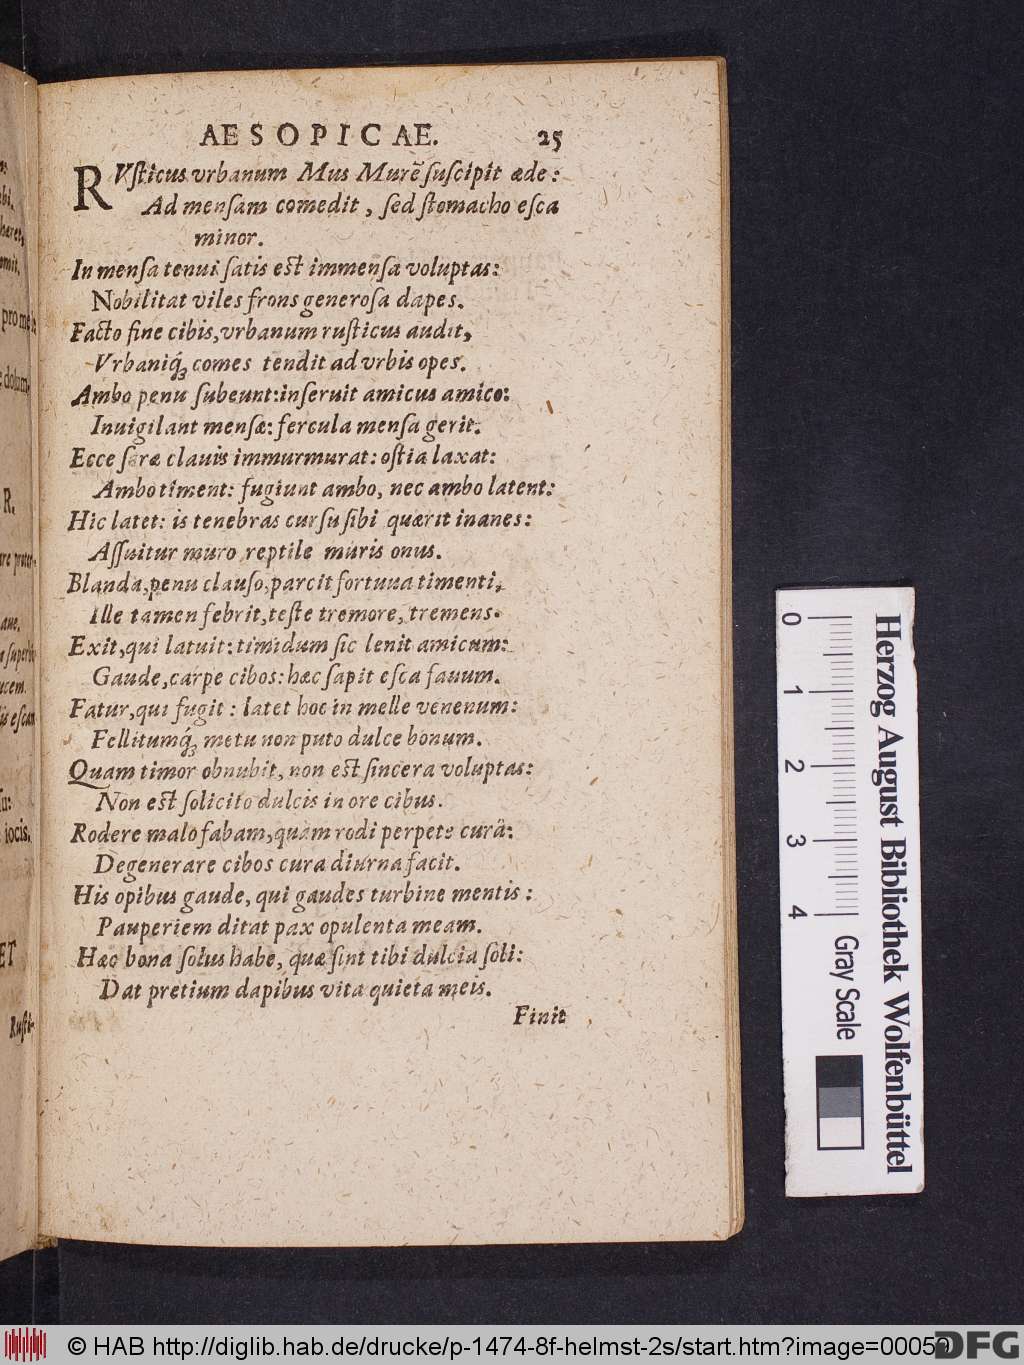 AESOPICAE. 25
RVſticus vrbanum Mus Murẽ ſuſcipit æde:
Ad menſam comedit, ſed ſtomacho eſca
minor.
In menſa tenui ſatis eſt immenſa voluptas:
Nobilitat viles frons generoſa dapes.
Facto fine cibis, vrbanum ruſticus audit,
Vrbaniq́ꝫ comes tendit ad vrbis opes.
Ambo penu ſubeunt: inſeruit amicus amico:
Inuigilant menſæ: fercula menſa gerit.
Ecce ſeræ clauis immurmurat: oſtia laxat:
Ambo timent: fugiunt ambo, nec ambo latent:
Hic latet: is tenebras curſu ſibi quærit inanes:
Aſſuitur muro reptile muris onus.
Blanda, penu clauſo, parcit fortuna timenti,
Ille tamen febrit, teſte tremore, tremens.
Exit, qui latuit: timidum ſic lenit amicum:
Gaude, carpe cibos: hæc ſapit eſca fauum.
Fatur, qui fugit: latet hoc in melle venenum:
Fellitumq́ꝫ metu non puto dulce bonum.
Quam timor obnubit, non eſt ſincera voluptas:
Non eſt ſolicito dulcis in ore cibus.
Rodere malo fabam, quàm rodi perpete curâ:
Degenerare cibos cura diurna facit.
His opibus gaude, qui gaudes turbine mentis:
Pauperiem ditat pax opulenta meam.
Hæc bona ſolus habe, quæ ſint tibi dulcia ſoli:
Dat pretium dapibus vita quieta meis.
Finit
0 1 2 3 4
Gray Scale
Herzog August Bibliothek Wolfenbüttel
© HAB http://diglib.hab.de/drucke/p-1474-8f-helmst-2s/start.htm?image=00059
DFG